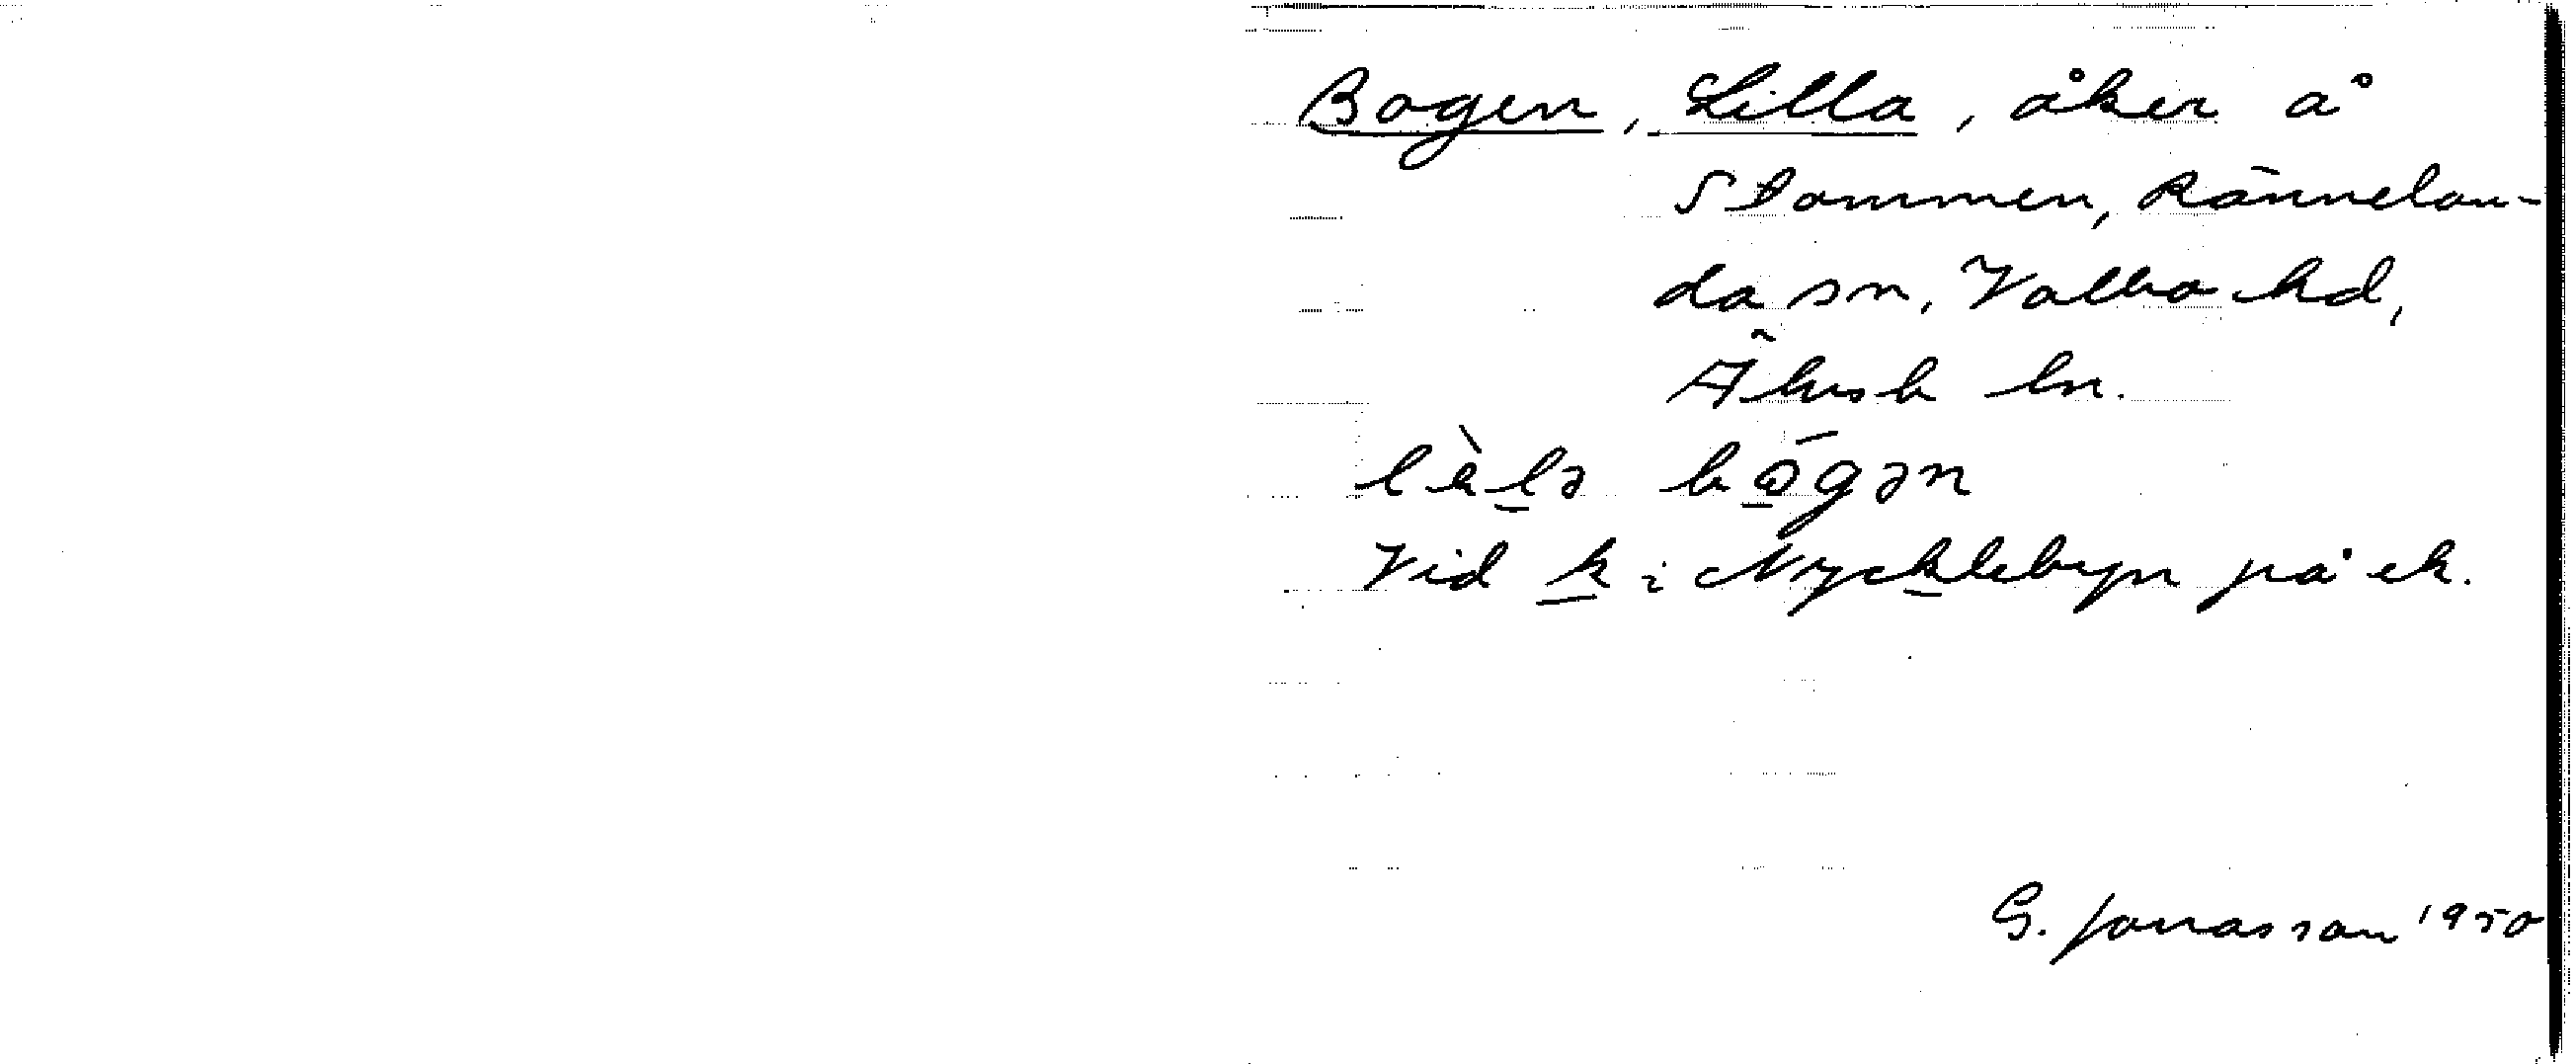 Bogen, Lilla, åker å
Stommen, Rännelan-
da sn, Valbo hd,
Älvsb ln.
lèlə bōgən
Vid k i Nycklebyn på ek.
G. Jonasson 1950